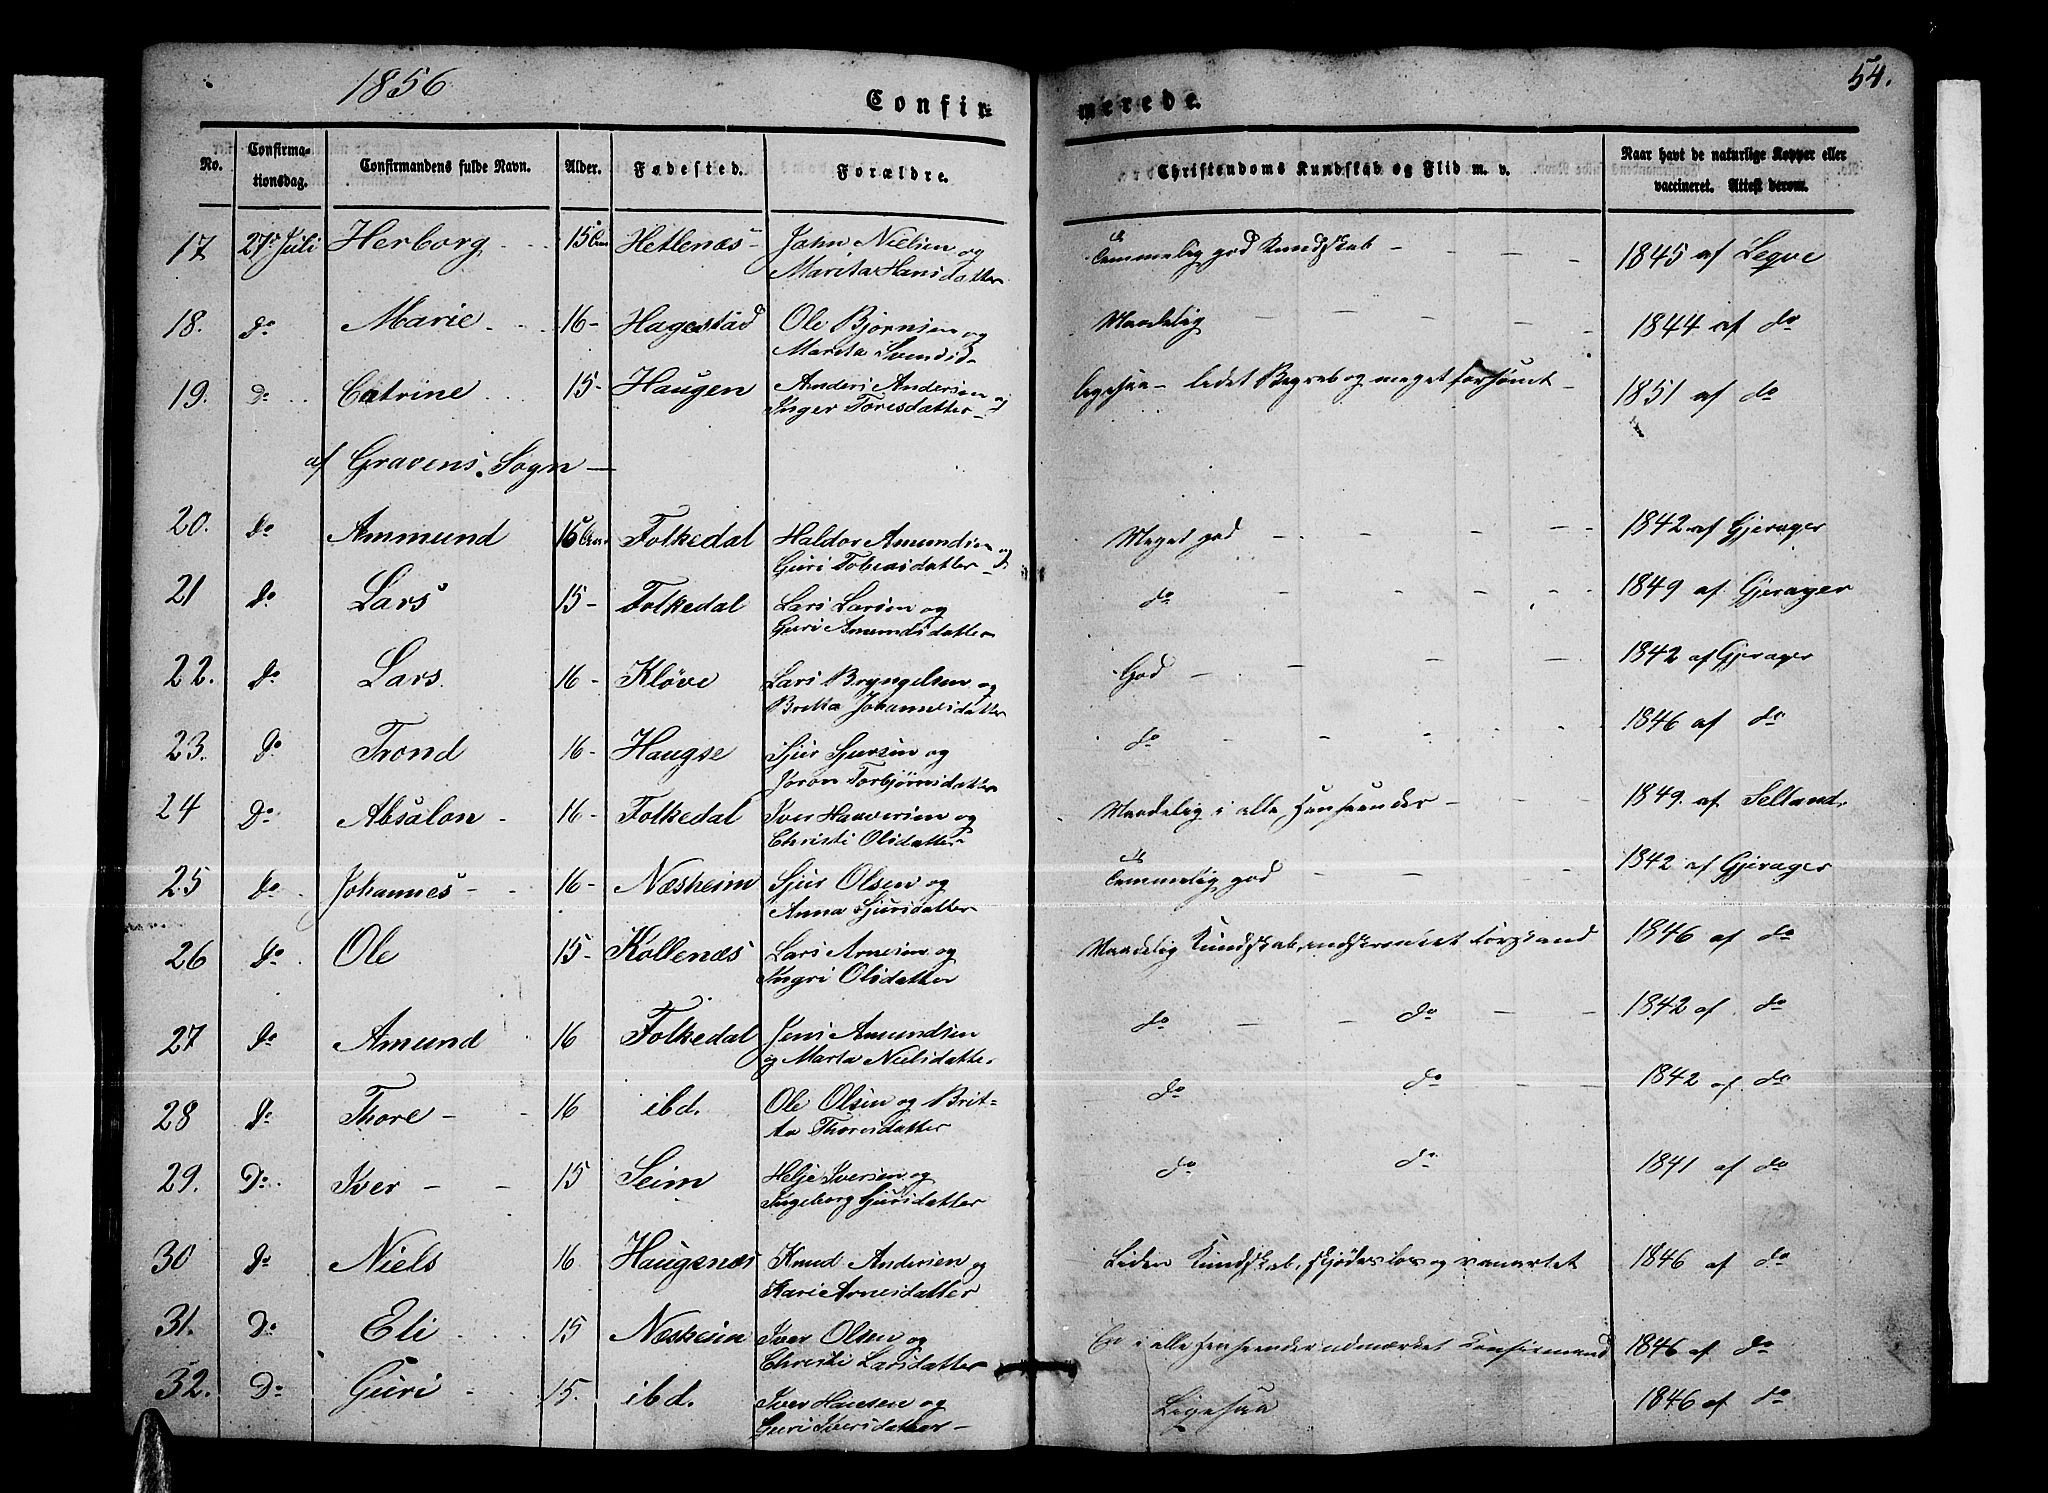 1856
54.
Confir=
merede.
No. Confirma-tionsdag. Confirmandens fulde Navn. Alder. Fødested. Forældre. Christendoms Kundskab og Flid m. v. Naar havt de naturlige Kopper eller vaccineret. Attest derom.
17 27de Juli Herborg 15 Hetlenæs John Nielsen og Temmelig god Kundskab 1845 af Leqve
Marita Hansdatter
18. do Marie 16 Hagestad Ole Bjørnsen og Maadelig 1844 af do
Marita Svendsd.
19. Do Catrine 15 Haugen Anders Andersen og ligesaa ledet Begreb og meget forsømt 1851 af do
Inger Toresdatter
af Gravens Sogn
20. do Ammund 16 Folkedal Haldor Amundsen og Meget god 1842 af Gjerager
Guri Tobiasdatter
21 do Lars 15 Folkedal Lars Larsen og do 1849 af Gjerager
Guri Amundsdatter
22. do Lars 16 Kløve Lars Bryngelsen og God 1842 af Gjerager
Britta Johannesdatter
23. Do Trond 16 Haugse Sjur Sjursen og do 1846 af do
Joron Torbjørnsdatter
24 Do Absalon 16 Folkedal Iver Haaversen og Maadelig i alle Henseender 1849 af Selland
Christi Olsdatter
25 do Johannes 16 Næsheim Sjur Olsen og Temmelig god 1842 af Gjerager
Anna Sjursdatter
26 do Ole 15 Kollenæs Lars Arnesen og Maadelig Kundskab, indskrænket Forstand 1846 af do
Ingri Olsdatter
27 do Amund 16 Folkedal Jens Amundsen do do 1842 af do
og Marta Nielsdatter
28 do Thore 16 ibd. Ole Olsen og Brit- do do 1842 af do
ta Thoresdatter
29. Do Iver 15 Seim Helje Iversen og do do 1841 af do
Ingeborg Sjursdatter
30 do Niels 16 Haugsnæs Knud Andersen og Liden Kundskab, skjødesløs og vanartet 1846 af do
Kari Arnesdatter
31. Do Eli 15 Næsheim Iver Olsen og En i alle Henseender udmærket Confirmand 1846 af do
Christi Larsdatter
32. Do Guri 15. ibd. Iver Hansen og Ligesaa 1846 af do
Guri Iversdatter